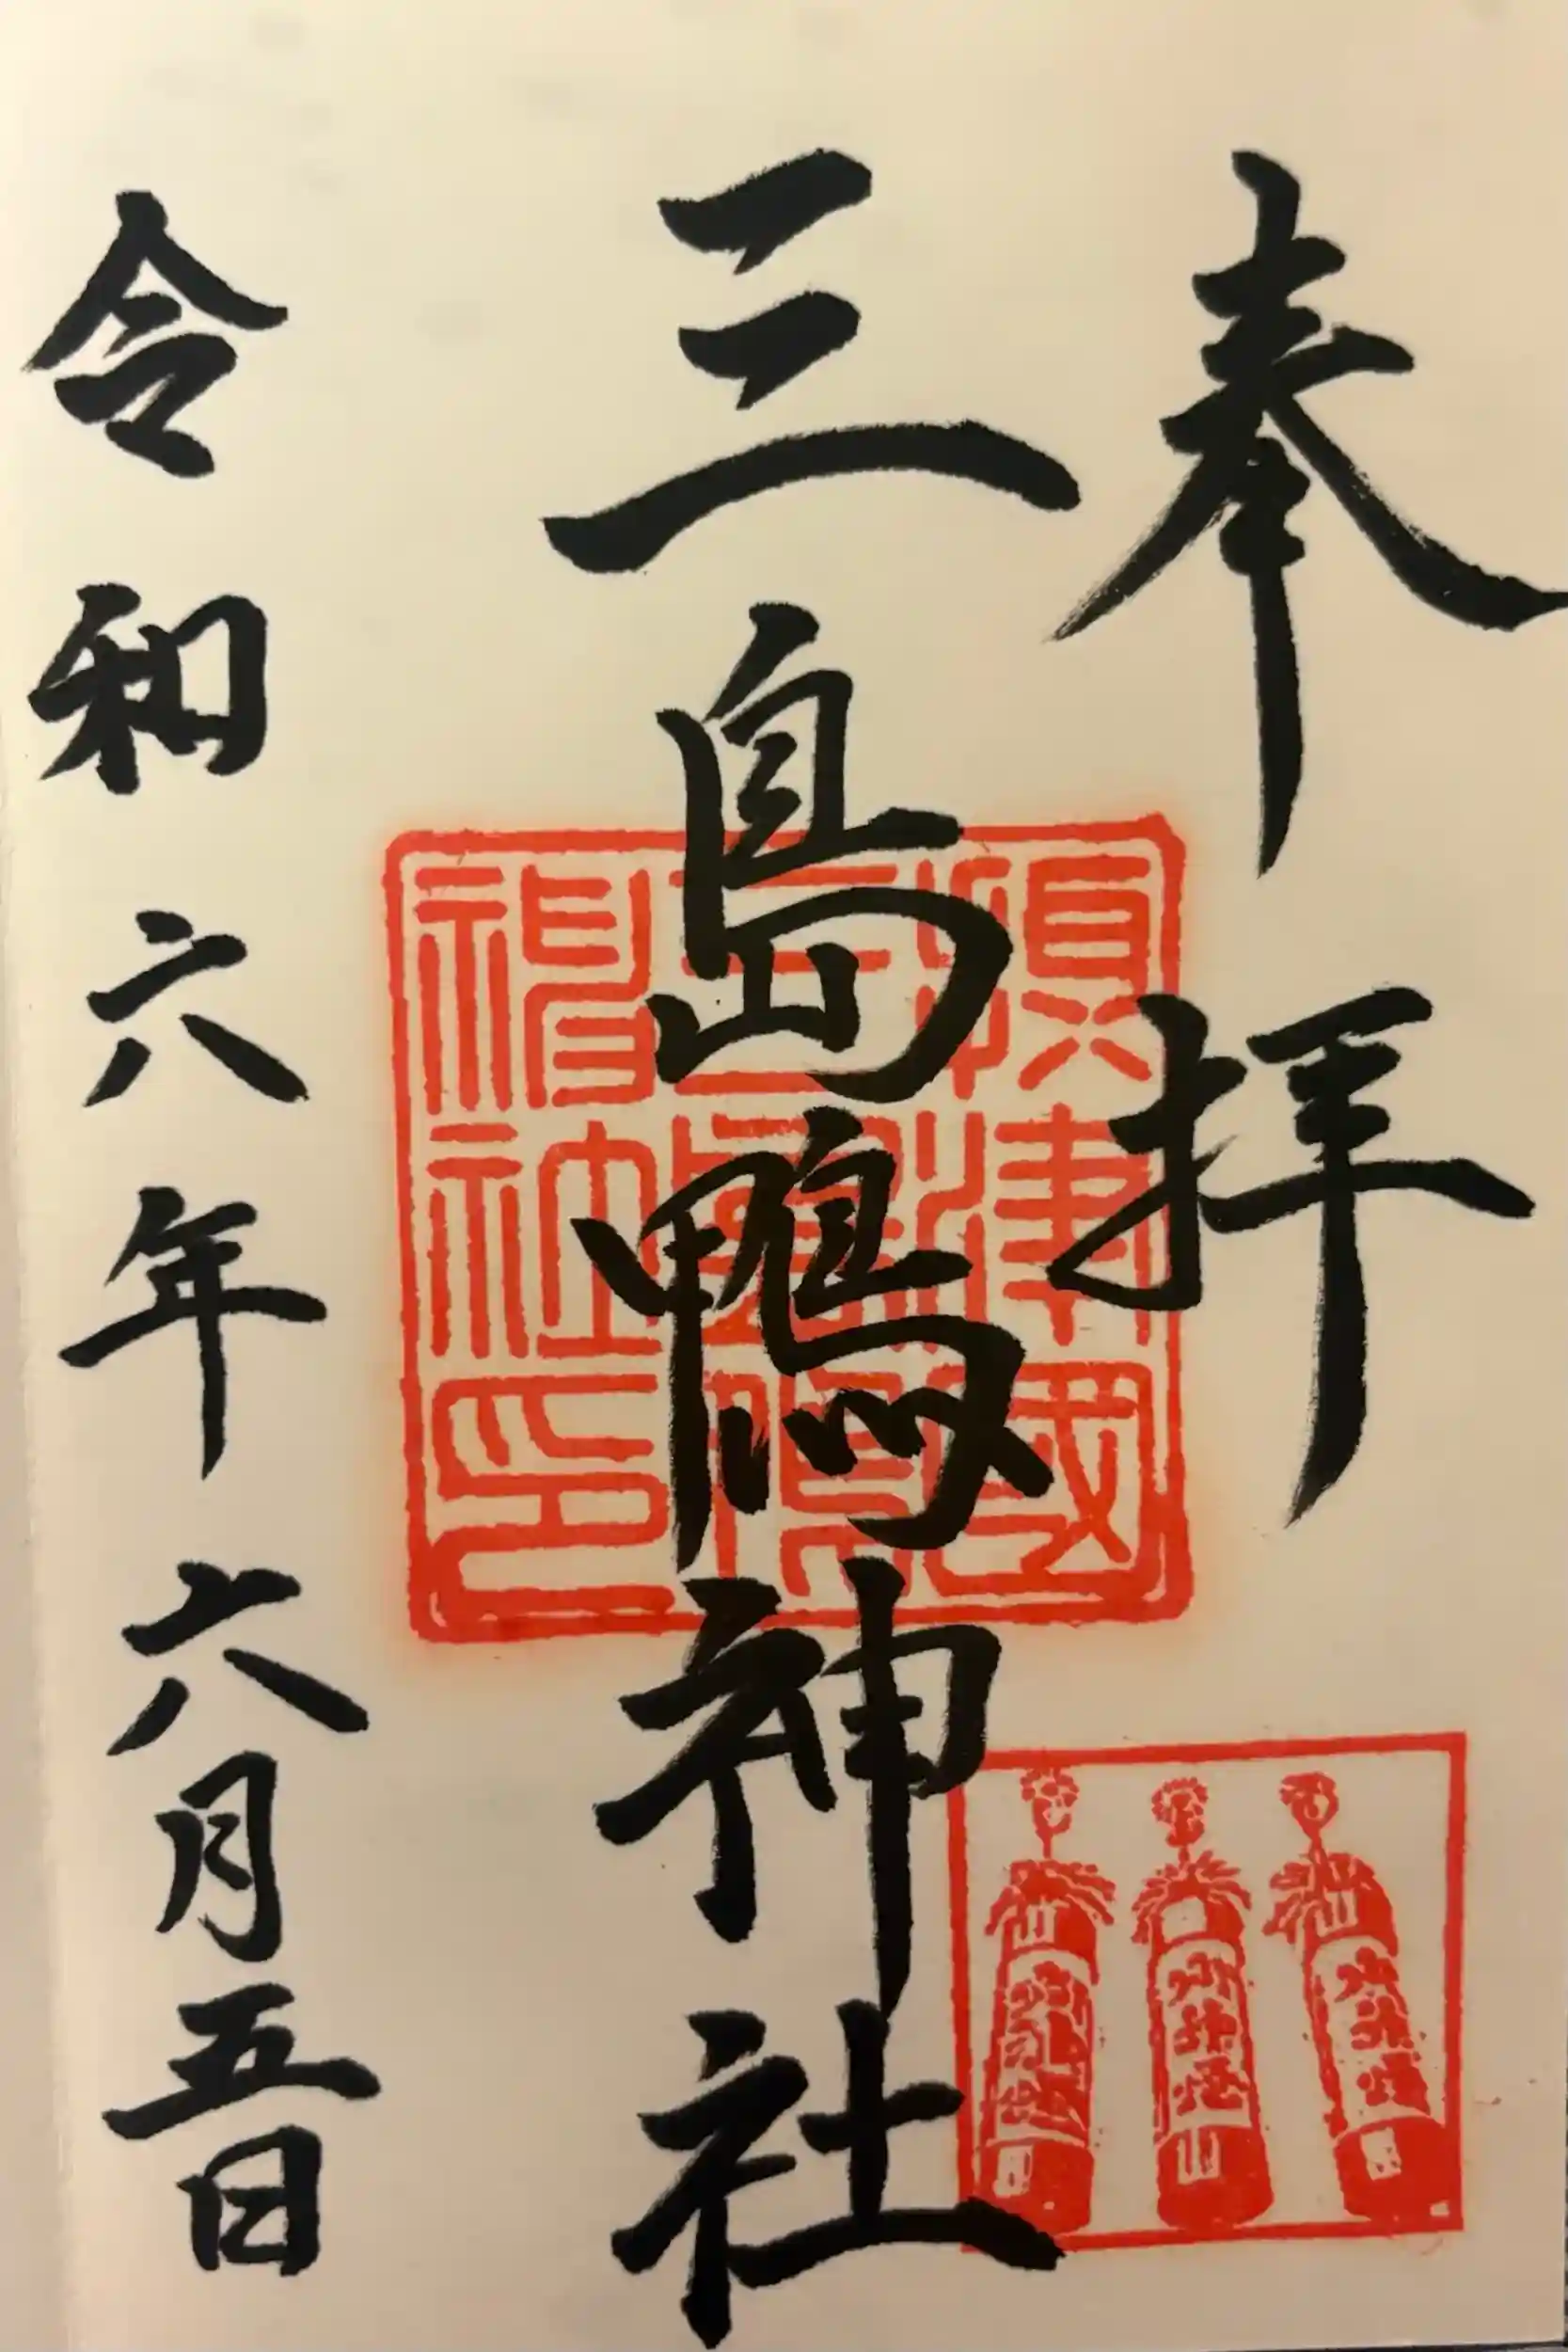 奉拝
三島鴨神社
令和六年六月五日
摂津国
三島鴨
神社印